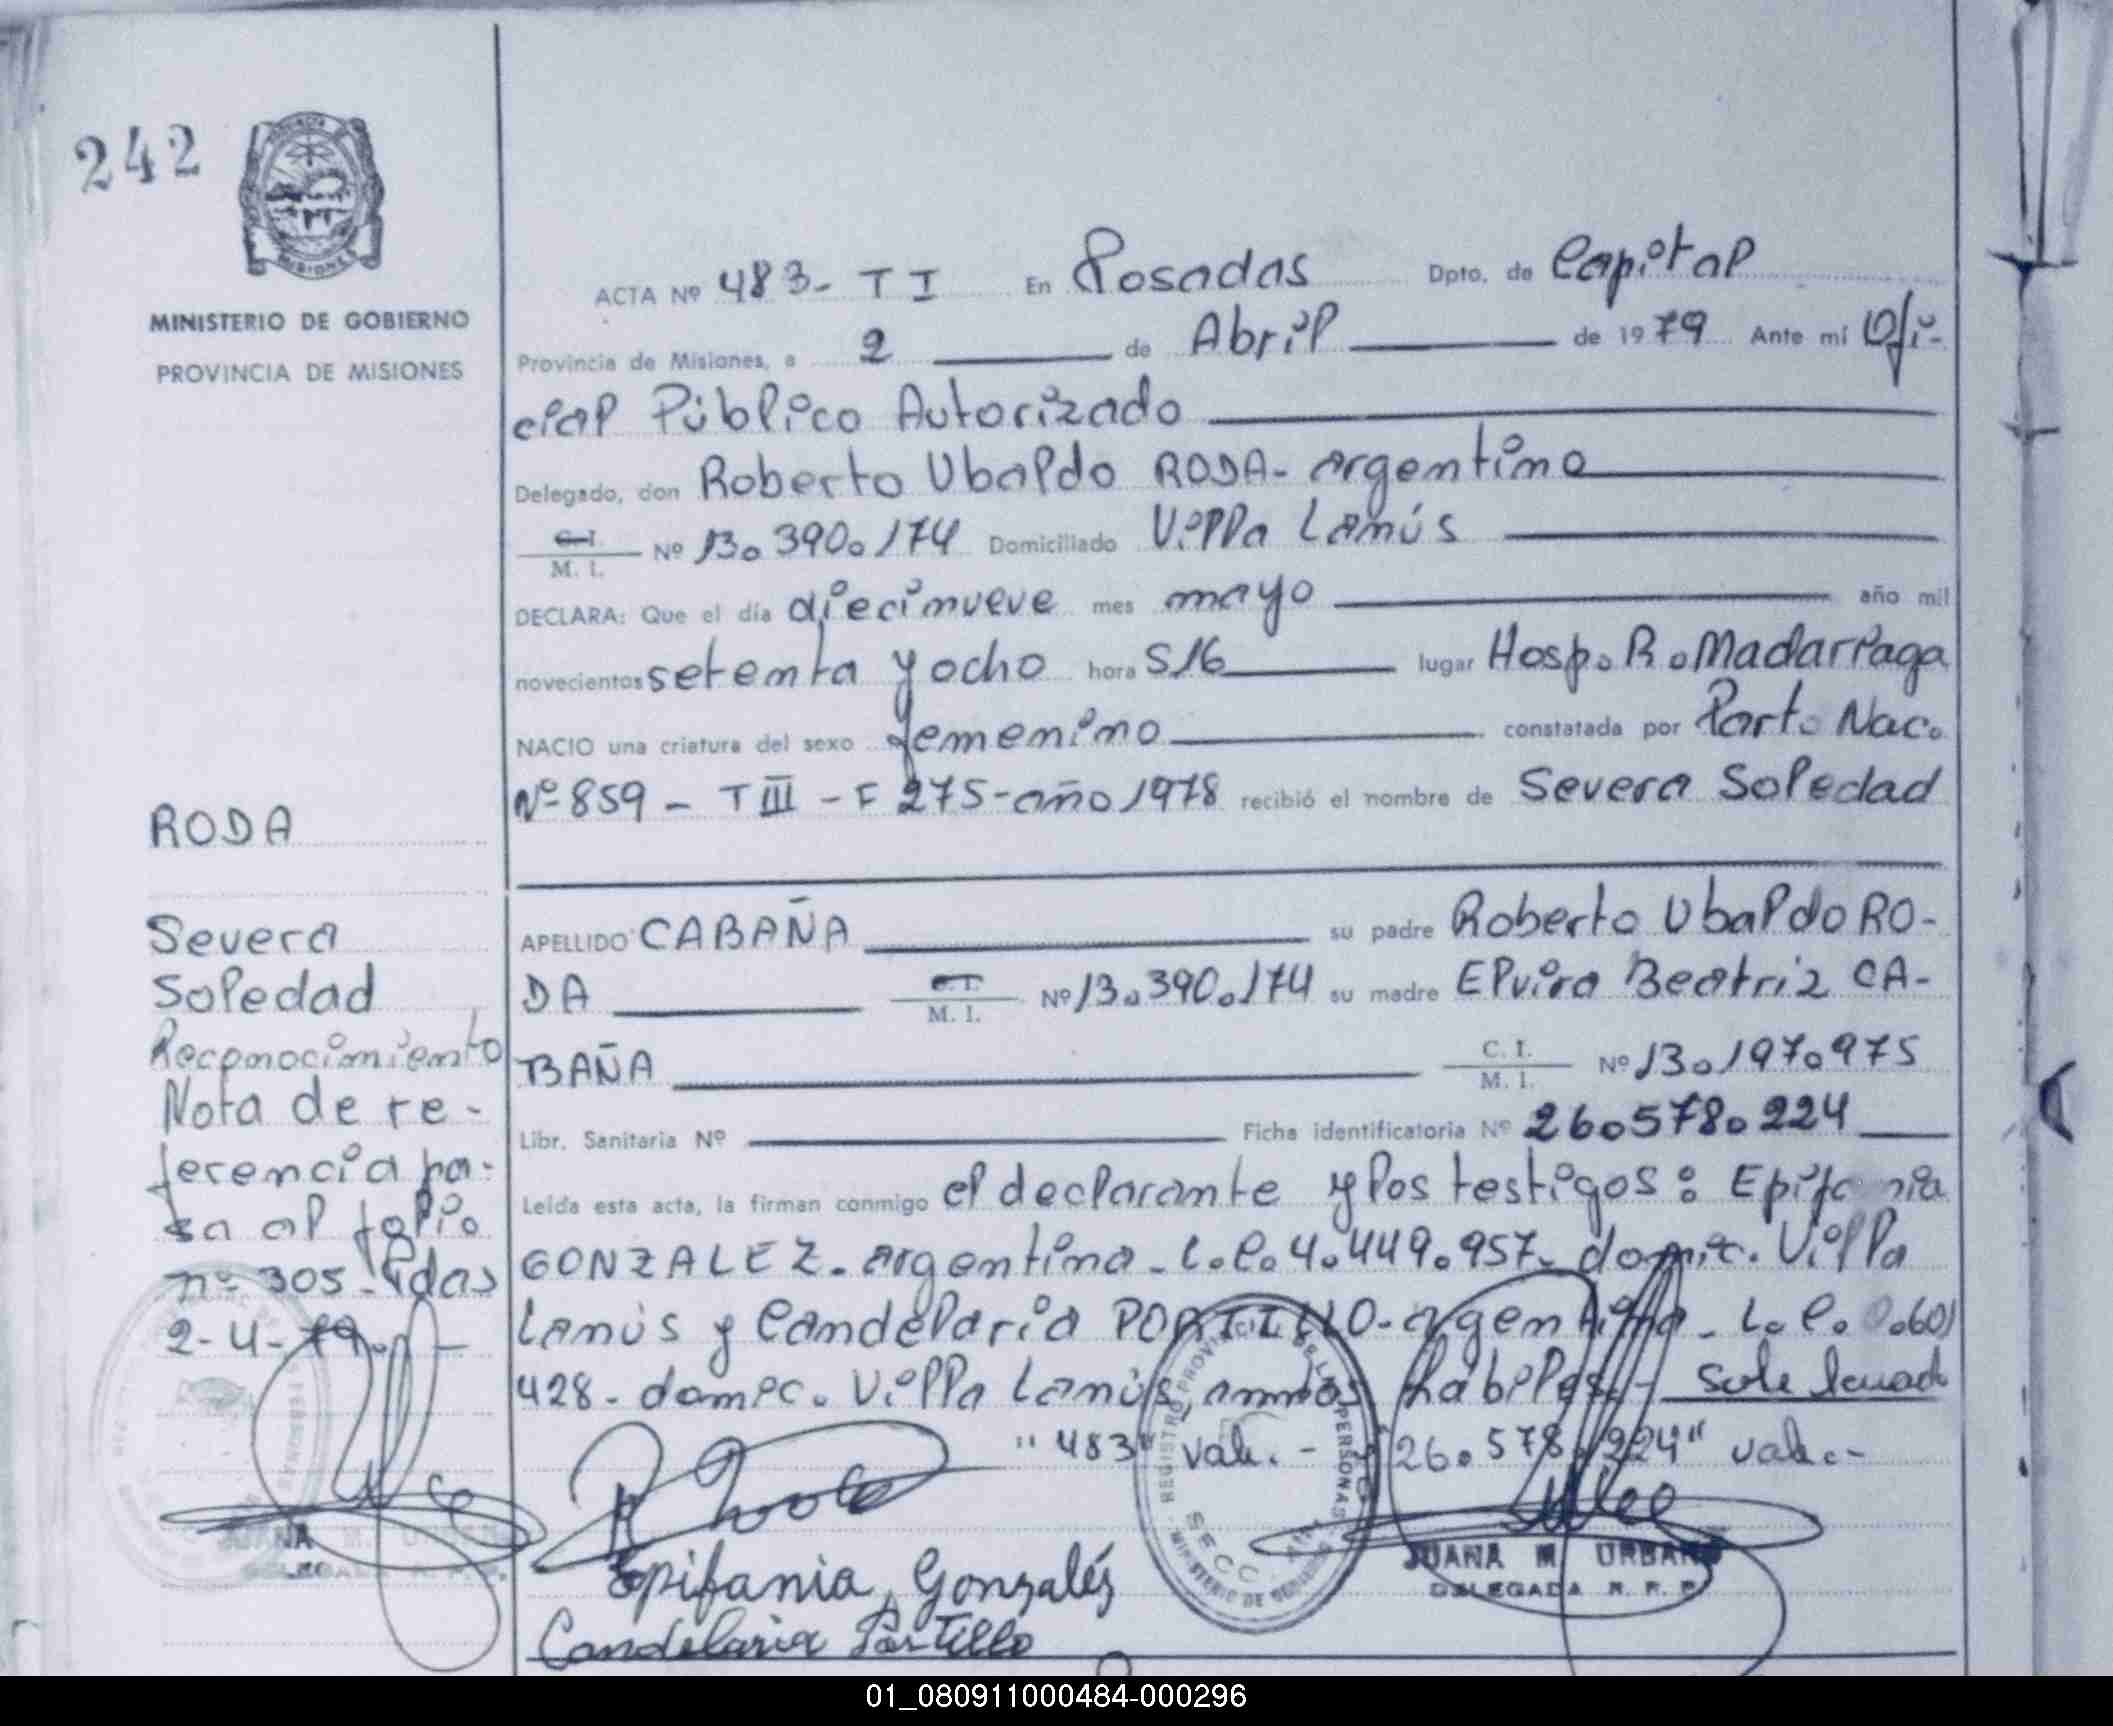 242
PROVINCIA DE
MISIONES
MINISTERIO DE GOBIERNO
PROVINCIA DE MISIONES
ACTA Nº 483- T I En Posadas Dpto. de Capital
Provincia de Misiones, a 2 de Abril de 1979 Ante mí Ofi-
cial Público Autorizado
Delegado, don Roberto Ubaldo RODA- argentino
C.I.
M. I. Nº 13.390.174 Domiciliado Villa Lanús
DECLARA: Que el día diecinueve mes mayo año mil
novecientos setenta y ocho hora S/6 lugar Hosp. R. Madarraga
NACIO una criatura del sexo femenino constatada por Part. Nac.
Nº 859 - T III - F 275 - año 1978 recibió el nombre de Severa Soledad
RODA
Severa
Soledad
Reconocimiento
Nota de re-
ferencia pa-
sa al folio
nº 305- Pdas
2-4-79.-
APELLIDO CABAÑA su padre Roberto Ubaldo RO-
DA C.I.
M. I. Nº 13.390.174 su madre Elvira Beatriz CA-
BAÑA C. I.
M. I. Nº 13.197.975
Libr. Sanitaria Nº Ficha identificatoria Nº 26.578.224
Leída esta acta, la firman conmigo el declarante y los testigos: Epifania
GONZALEZ- argentina- L.C. 4.449.957- domic. Villa
Lanús y Candelaria PORTILLO- argentina- L.C. .601
428- domic. Villa Lanús, ambos habiles.-
"483" vale.- "26.578.224" vale.-
REGISTRO PROVINCIAL DE LAS PERSONAS
MINISTERIO DE GOBIERNO
SECC
JUANA M. URBAN
DELEGADA R. P. P.
JUANA M. URBANO
DELEGADA R. P. P.
Epifania Gonzalés
Candelaria Portillo
01_080911000484-000296